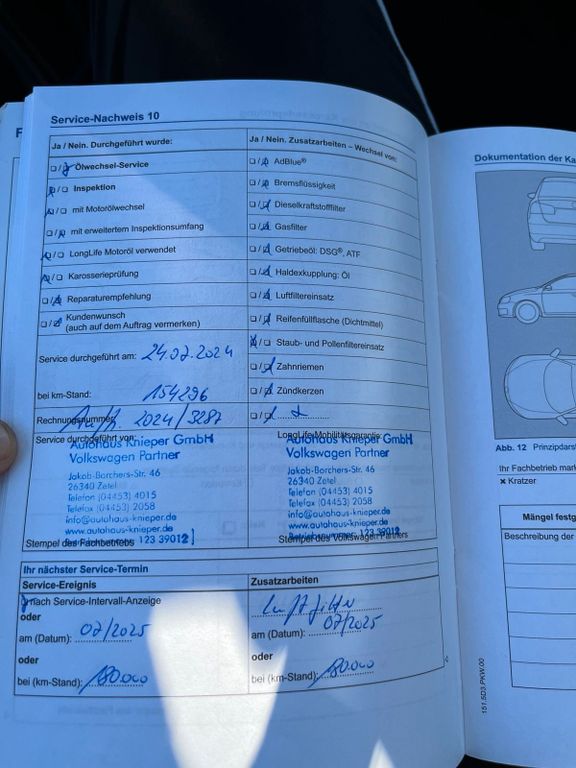 Service-Nachweis 10
Ja / Nein. Durchgeführt wurde:
Ölwechsel-Service
Inspektion
mit Motorölwechsel
mit erweitertem Inspektionsumfang
LongLife Motoröl verwendet
Karosserieprüfung
Reparaturempfehlung
Kundenwunsch
(auch auf dem Auftrag vermerken)
Service durchgeführt am: 24.07.2024
bei km-Stand: 154296
Rechnungsnummer: 2024/3287
Service durchgeführt von:
Autohaus Knieper GmbH
Volkswagen Partner
Jakob-Borchers-Str. 46
26340 Zetel
Telefon (04453) 4015
Telefax (04453) 2058
info@autohaus-knieper.de
www.autohaus-knieper.de
123 39012
Stempel des Fachbetriebs
Ja / Nein. Zusatzarbeiten – Wechsel von:
AdBlue®
Bremsflüssigkeit
Dieselkraftstofffilter
Gasfilter
Getriebeöl: DSG®, ATF
Haldexkupplung: Öl
Luftfiltereinsatz
Reifenfüllflasche (Dichtmittel)
Staub- und Pollenfiltereinsatz
Zahnriemen
Zündkerzen
LongLife Mobilitätsgarantie:
Autohaus Knieper GmbH
Volkswagen Partner
Jakob-Borchers-Str. 46
26340 Zetel
Telefon (04453) 4015
Telefax (04453) 2058
info@autohaus-knieper.de
www.autohaus-knieper.de
Betriebsnummer: 123 39012
Stempel des Volkswagen Partners
Ihr nächster Service-Termin
Service-Ereignis
nach Service-Intervall-Anzeige
oder
am (Datum): 07/2025
oder
bei (km-Stand): 180.000
Zusatzarbeiten
Luftfilter
am (Datum): 07/2025
oder
bei (km-Stand): 180.000
Dokumentation der Ka
Abb. 12 Prinzipdarst
Ihr Fachbetrieb mark
× Kratzer
Mängel festg
Beschreibung der
151.5D3.PKW.00